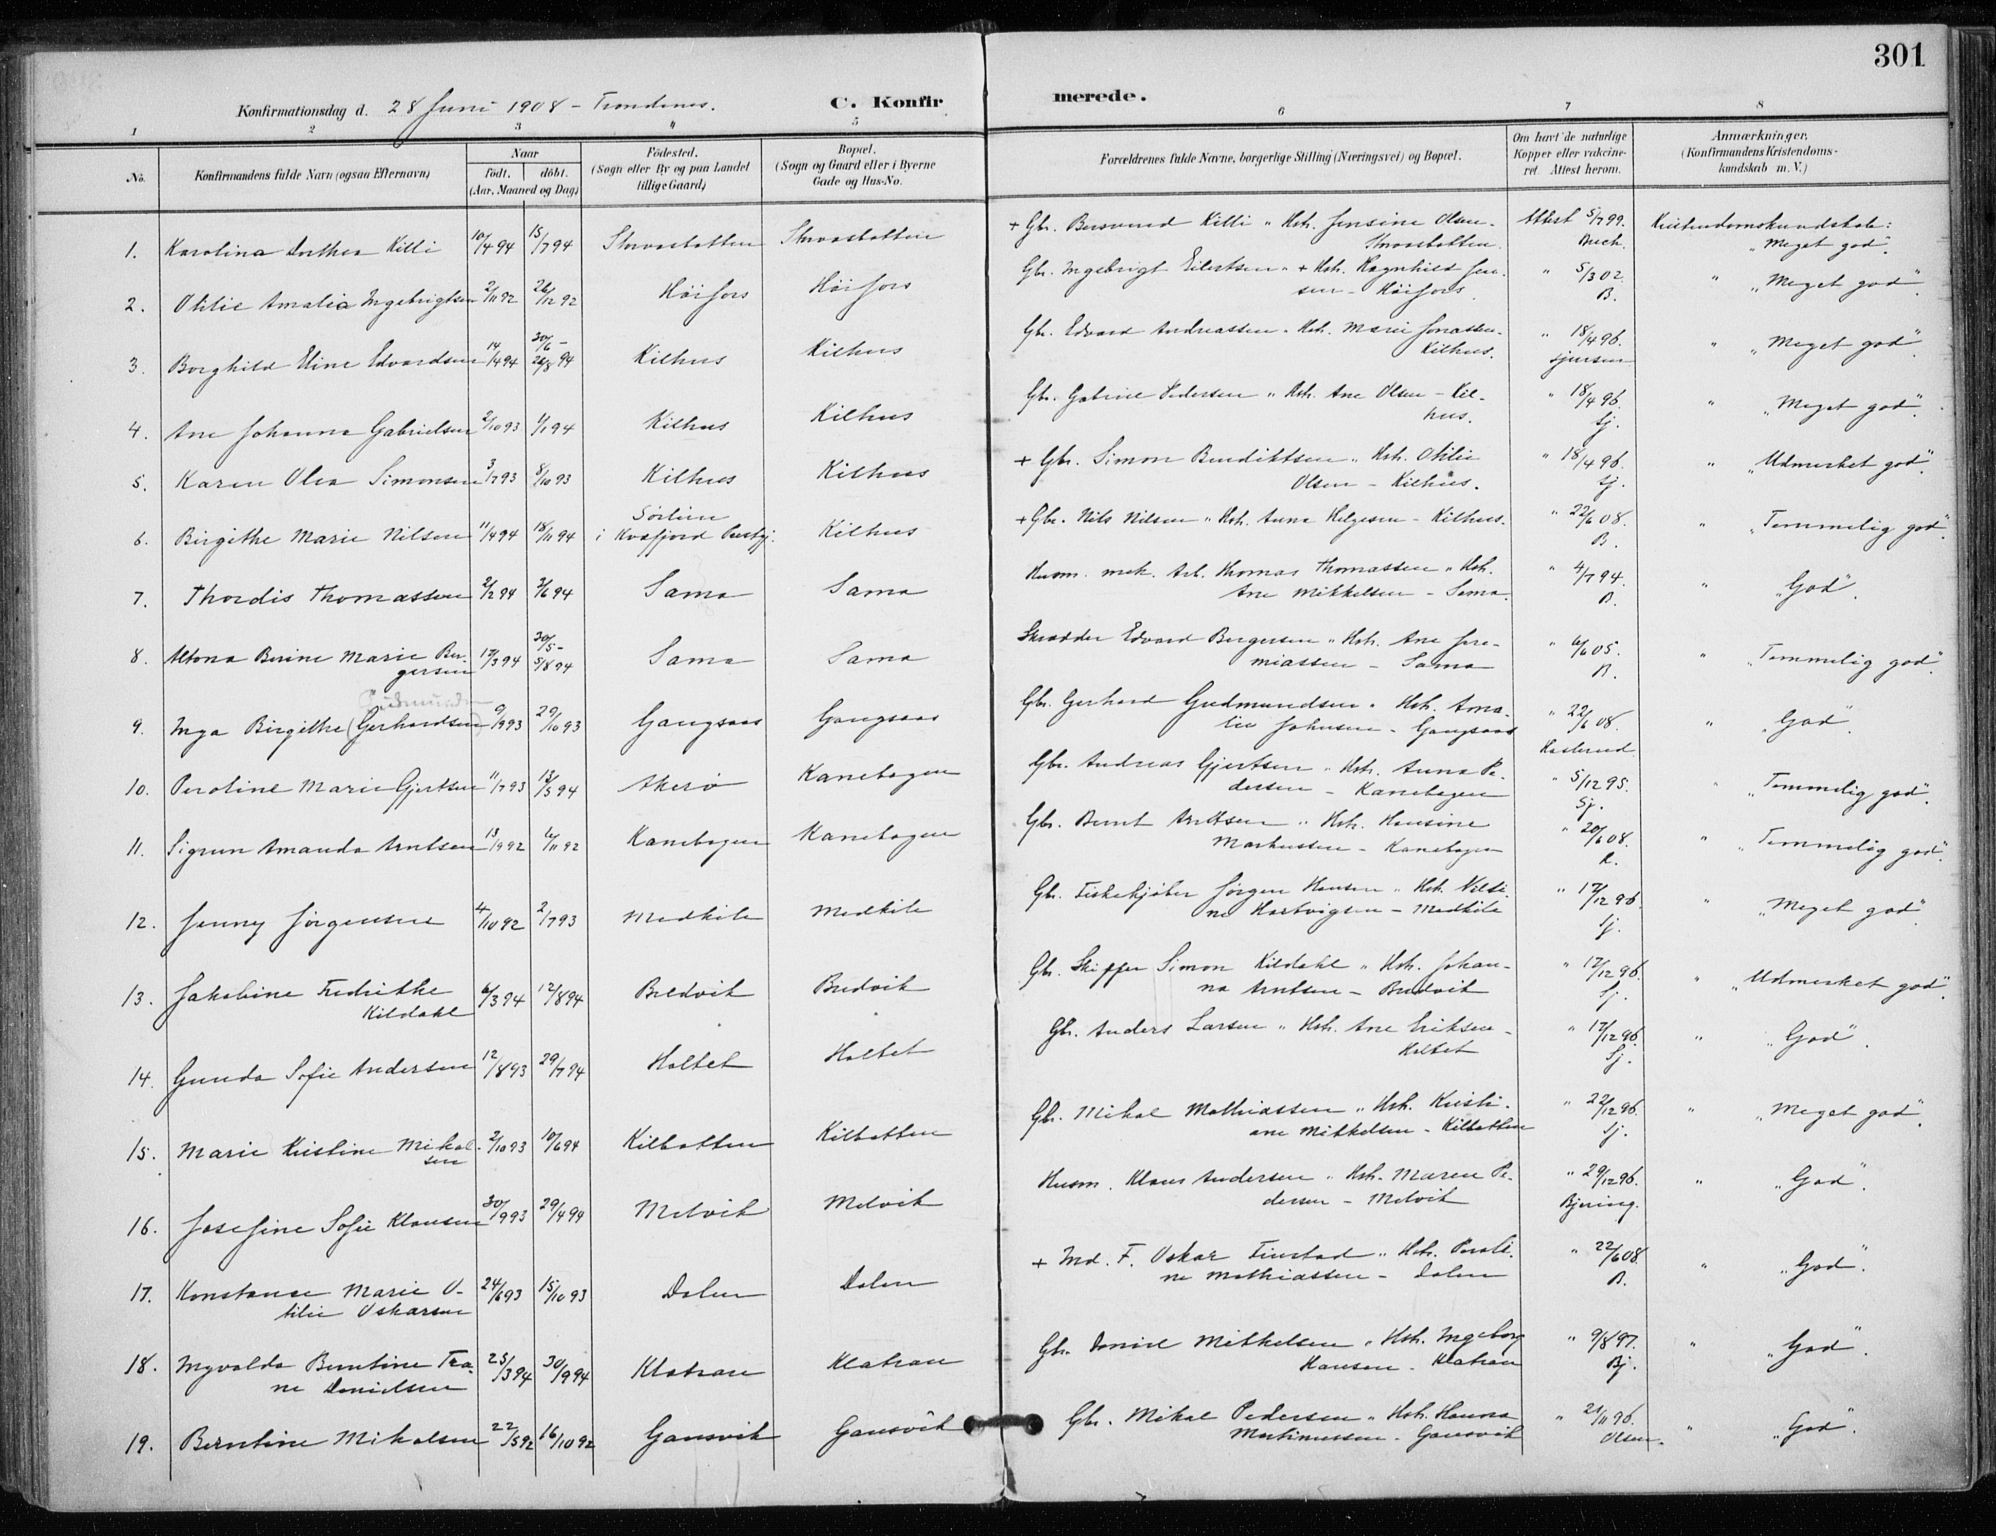 301
Konfirmationsdag d. 28 Juni 1908 - Trondenes.
C. Konfirmerede.
1 2 3 4 5 6 7 8
No.
Konfirmandens fulde Navn (ogsaa Efternavn)
Naar
født. døbt.
(Aar, Maaned og Dag)
Fødested.
(Sogn eller By og paa Landet
tillige Gaard)
Bopæl.
(Sogn og Gaard eller i Byerne
Gade og Hus-No.
Forældrenes fulde Navne, borgerlige Stilling (Næringsvei) og Bopæl.
Om havt de naturlige
Kopper eller vakcine-
ret. Attest herom.
Anmærkninger.
(Konfirmandens Kristendoms-
kundskab m. V.)
1. Karolina Dorthea Killi 10/4 94 15/7 94 Storvasbotten Storvasbotten + Gbr. Killi " Hst. Jensine Olsen - Attest 5/7 99. Kristendomskundskab:
Storvasbotten. Buch. "Meget god".
2. Otilie Amalia Ingebrigtsen 2/11 92 26/12 92 Høifors Høifors Gbr. Ingebrigt Eilertsen " + Hst. Ragnhild Jen- " 5/3 02. " "Meget god".
sen - Høifors. B.
3. Borghild Eline Edvardsen 14/4 94 30/6 - 26/8 94 Kilhus Kilhus Gbr. Edvard Andreassen " Hst. Marie Jonassen - " 18/4 96. " "Meget god".
Kilhus. Sjursen
4. Ane Johanna Gabrielsen 2/10 93 1/1 94 Kilhus Kilhus Gbr. Gabriel Pedersen " Hst. Ane Olsen - Kil- " 18/4 96. " "Meget god".
hus. Sj.
5. Karen Olea Simonsen 3/7 93 8/10 93 Kilhus Kilhus + Gbr. Simon Bendiktsen " Hst. Otilie " 18/4 96. " "Udmerket god".
Olsen - Kilhus. Sj.
6. Birgithe Marie Nilsen 11/4 94 18/11 94 Sørlien
i Kvæfjord Prestgj. Kilhus + Gbr. Nils Nilsen " Hst. Anna Helgesen - Kilhus. " 22/6 08. " "Temmelig god".
B.
7. Thordis Thomassen 2/2 94 3/6 94 Sama Sama Husm. Thomas Thomassen " Hst. " 4/7 94. " "God".
Ane Mikkelsen - Sama. B.
8. Altona Berine Marie Ber-
gersen 17/3 94 30/5 - 5/8 94 Sama Sama Skrædder Edvard Bergersen " Hst. Ane Jere- " 6/6 05. " "Temmelig god".
miassen - Sama B.
9. Inga Birgithe (Gerhardsen) 9/9 93 29/10 93 Gangsaas Gangsaas Gbr. Gerhard Gudmundsen " Hst. Ama- " 22/6 08. " "God".
lie Johnsen - Gangsaas
10. Peroline Marie Gjertsen 11/7 93 13/5 94 Akerø Kanebogen Gbr. Andreas Gjertsen " Hst. Anna Pe- " 5/12 95. " "Temmelig god".
dersen - Kanebogen Sj.
11. Sigrun Amanda Arntsen 13/9 92 6/11 92 Kanebogen Kanebogen Gbr. Bernt Arntsen " Hst. Hansine " 20/6 08. " "Temmelig god".
Markussen - Kanebogen R.
12. Jenny Jørgensen 4/10 92 2/7 93 Medkile Medkile Gbr. Fiskekjøber Jørgen Hansen " Hst. " 17/12 96. " "Meget god".
ne Hartvigsen - Medkile Sj.
13. Jakobine Fredrikke
Kildahl 6/3 94 12/8 94 Bredvik Bredvik Gbr. Skipper Simon Kildahl " Hst. Johan- " 17/12 96. " "Udmerket god".
na Arntsen - Bredvik Sj.
14. Gunda Sofie Andersen 12/8 93 29/7 94 Holtet Holtet Gbr. Anders Larsen " Hst. Ane Eriksen - " 17/12 96. " "God".
Holtet Sj.
15. Marie Kristine Mikal-
sen 2/10 93 10/6 94 Kilbotten Kilbotten Gbr. Mikal Mathiassen " Hst. Kristi- " 22/12 96. " "Meget god".
ane Mikkelsen - Kilbotten Sj.
16. Josefine Sofie Klausen 30/9 93 29/4 94 Melvik Melvik Husm. Klaus Andersen " Hst. Maren Pe- " 29/12 96. " "God".
dersen - Melvik Bjering.
17. Konstance Marie O-
tilie Oskarsen 24/6 93 15/10 93 Dalen Dalen + Md. F. Oskar Finstad " Hst. Peroli- " 22/6 08. " "God".
ne Mathiassen - Dalen B.
18. Ingvalda Berntine Tra-
ne Danielsen 25/3 94 30/9 94 Klatran Klatran Gbr. Daniel Mikkelsen " Hst. Ingeborg " 9/8 97. " "God".
Hansen - Klatran Bj.
19. Berntine Mikalsen 22/5 92 16/10 92 Gansvik Gansvik Gbr. Mikal Pedersen " Hst. Hanna " 21/11 96. " "God".
Martinussen - Gansvik Olsen.